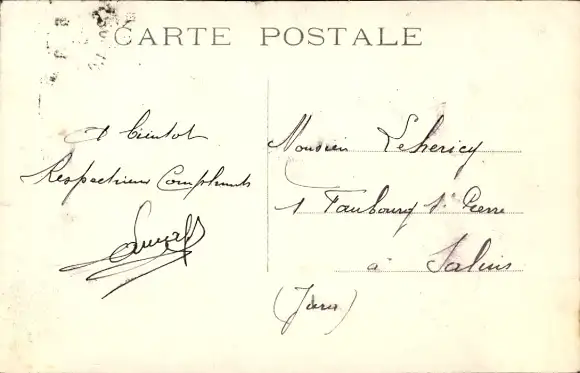 CARTE POSTALE
A bientot
Respectueux Compliments
Monsieur Lehericy
1 Faubourg St Pierre
à Salins
(Jura)